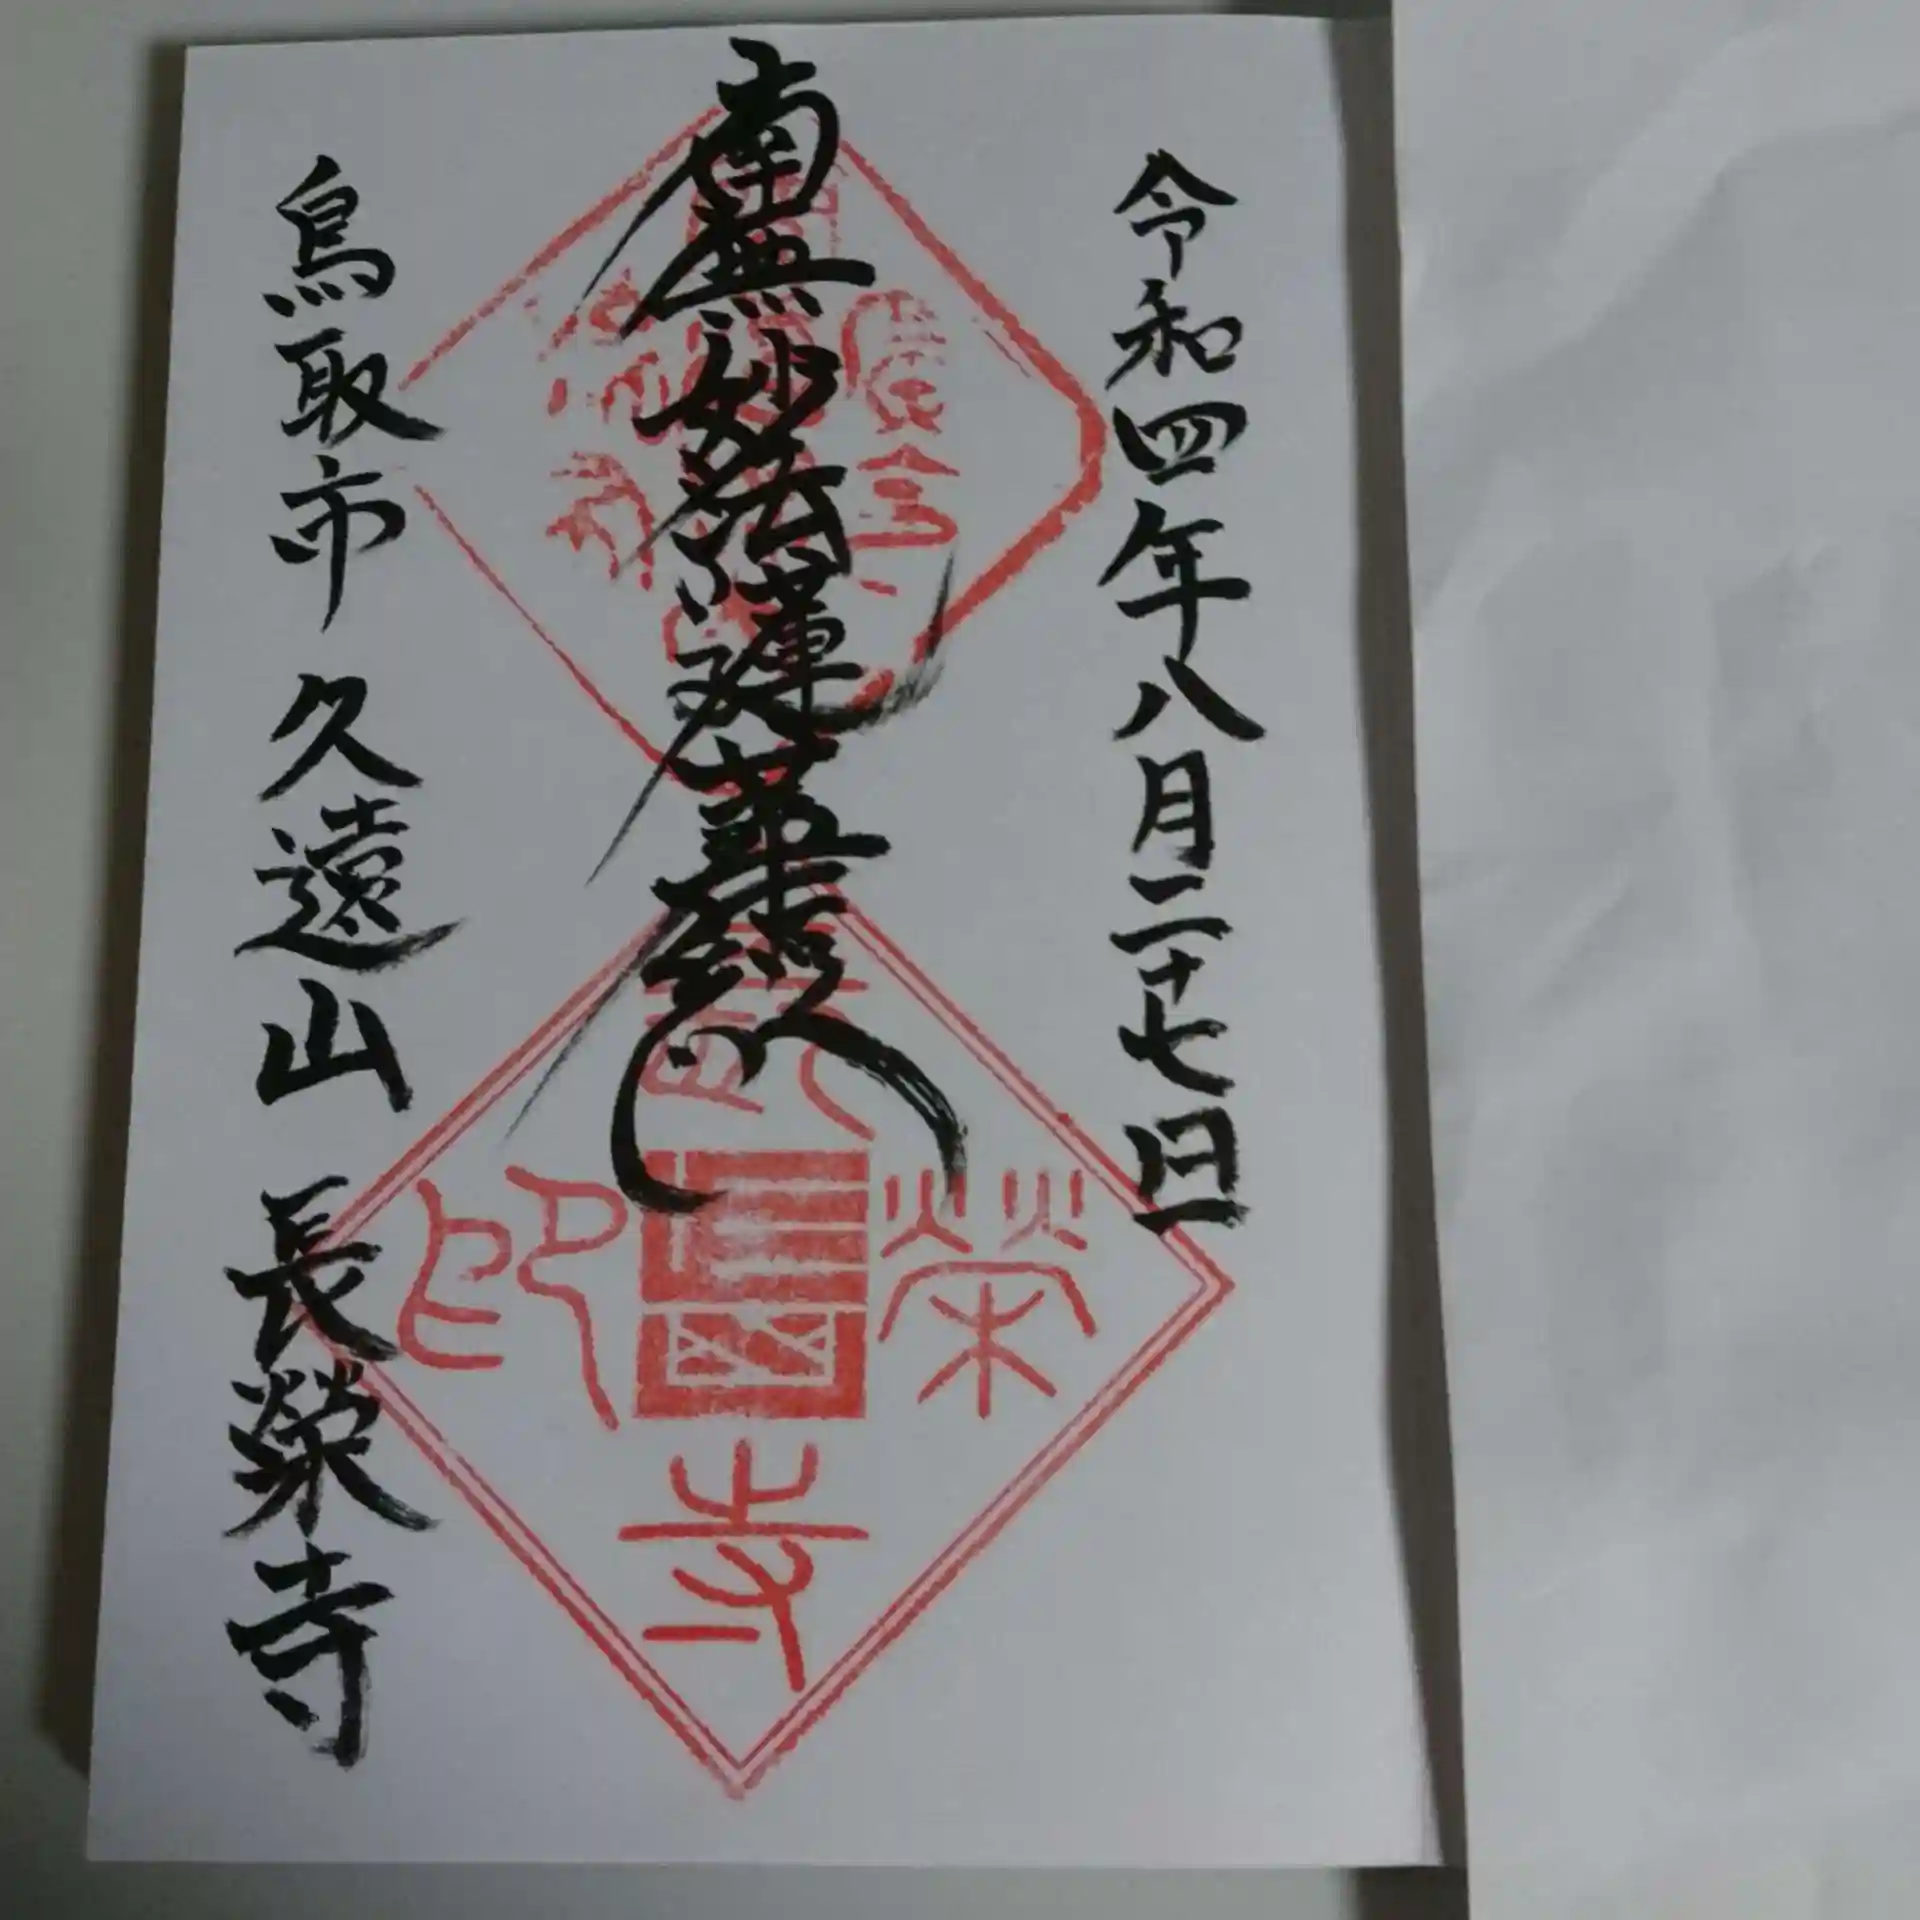 令和四年八月二十七日
南無妙法蓮華経
鳥取市 久遠山 長榮寺
長
榮
寺
印